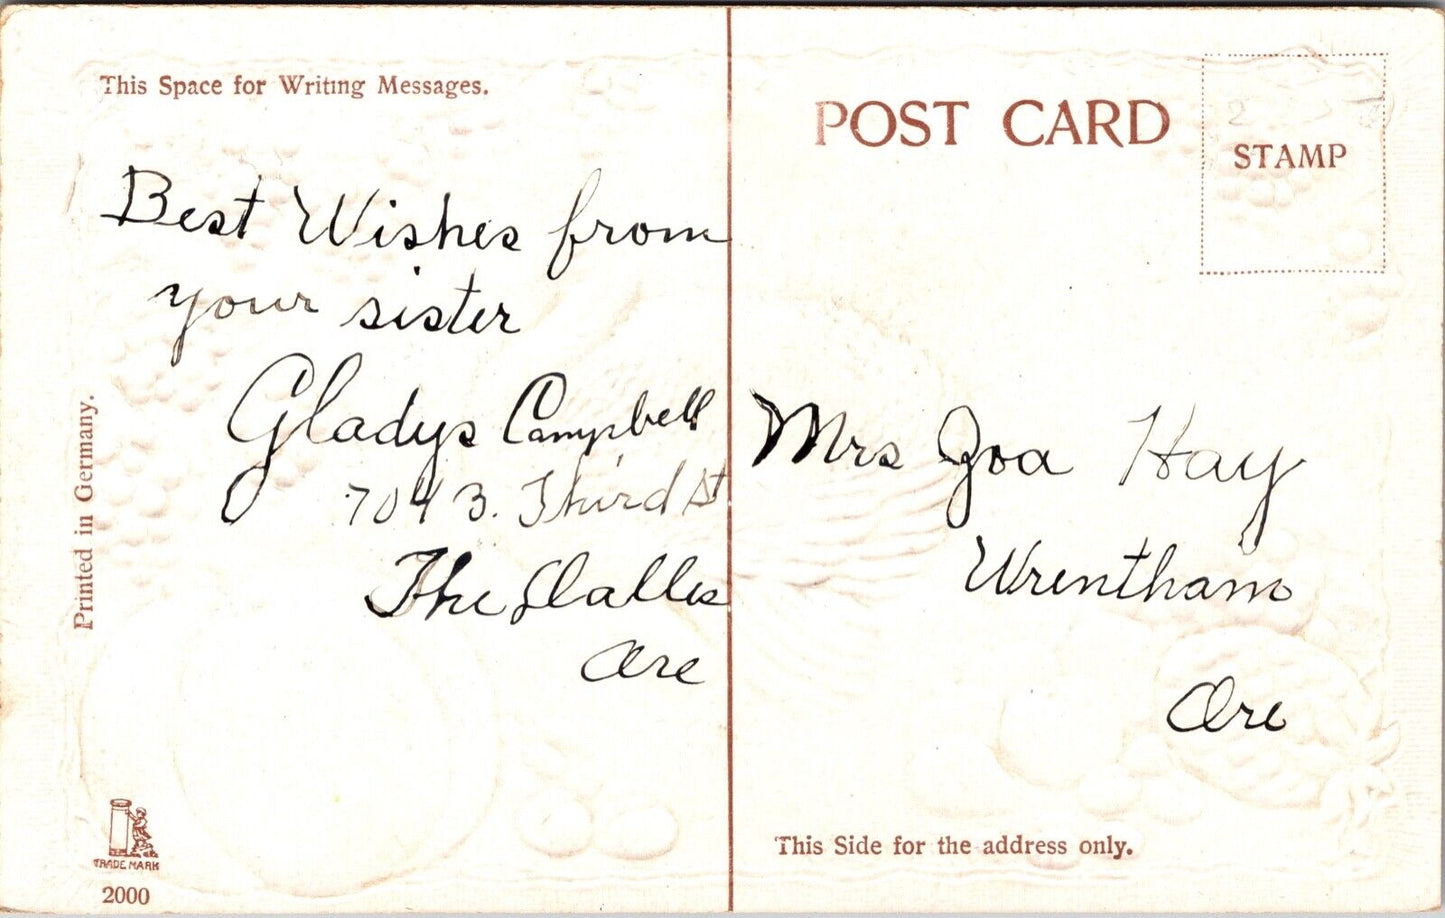 This Space for Writing Messages.
Best Wishes from
your sister
Gladys Campbell
704 3. Third St
The Dalles
Ore
Printed in Germany.
TRADE MARK
2000
POST CARD
STAMP
Mrs Joa Hay
Wrentham
Ore
This Side for the address only.